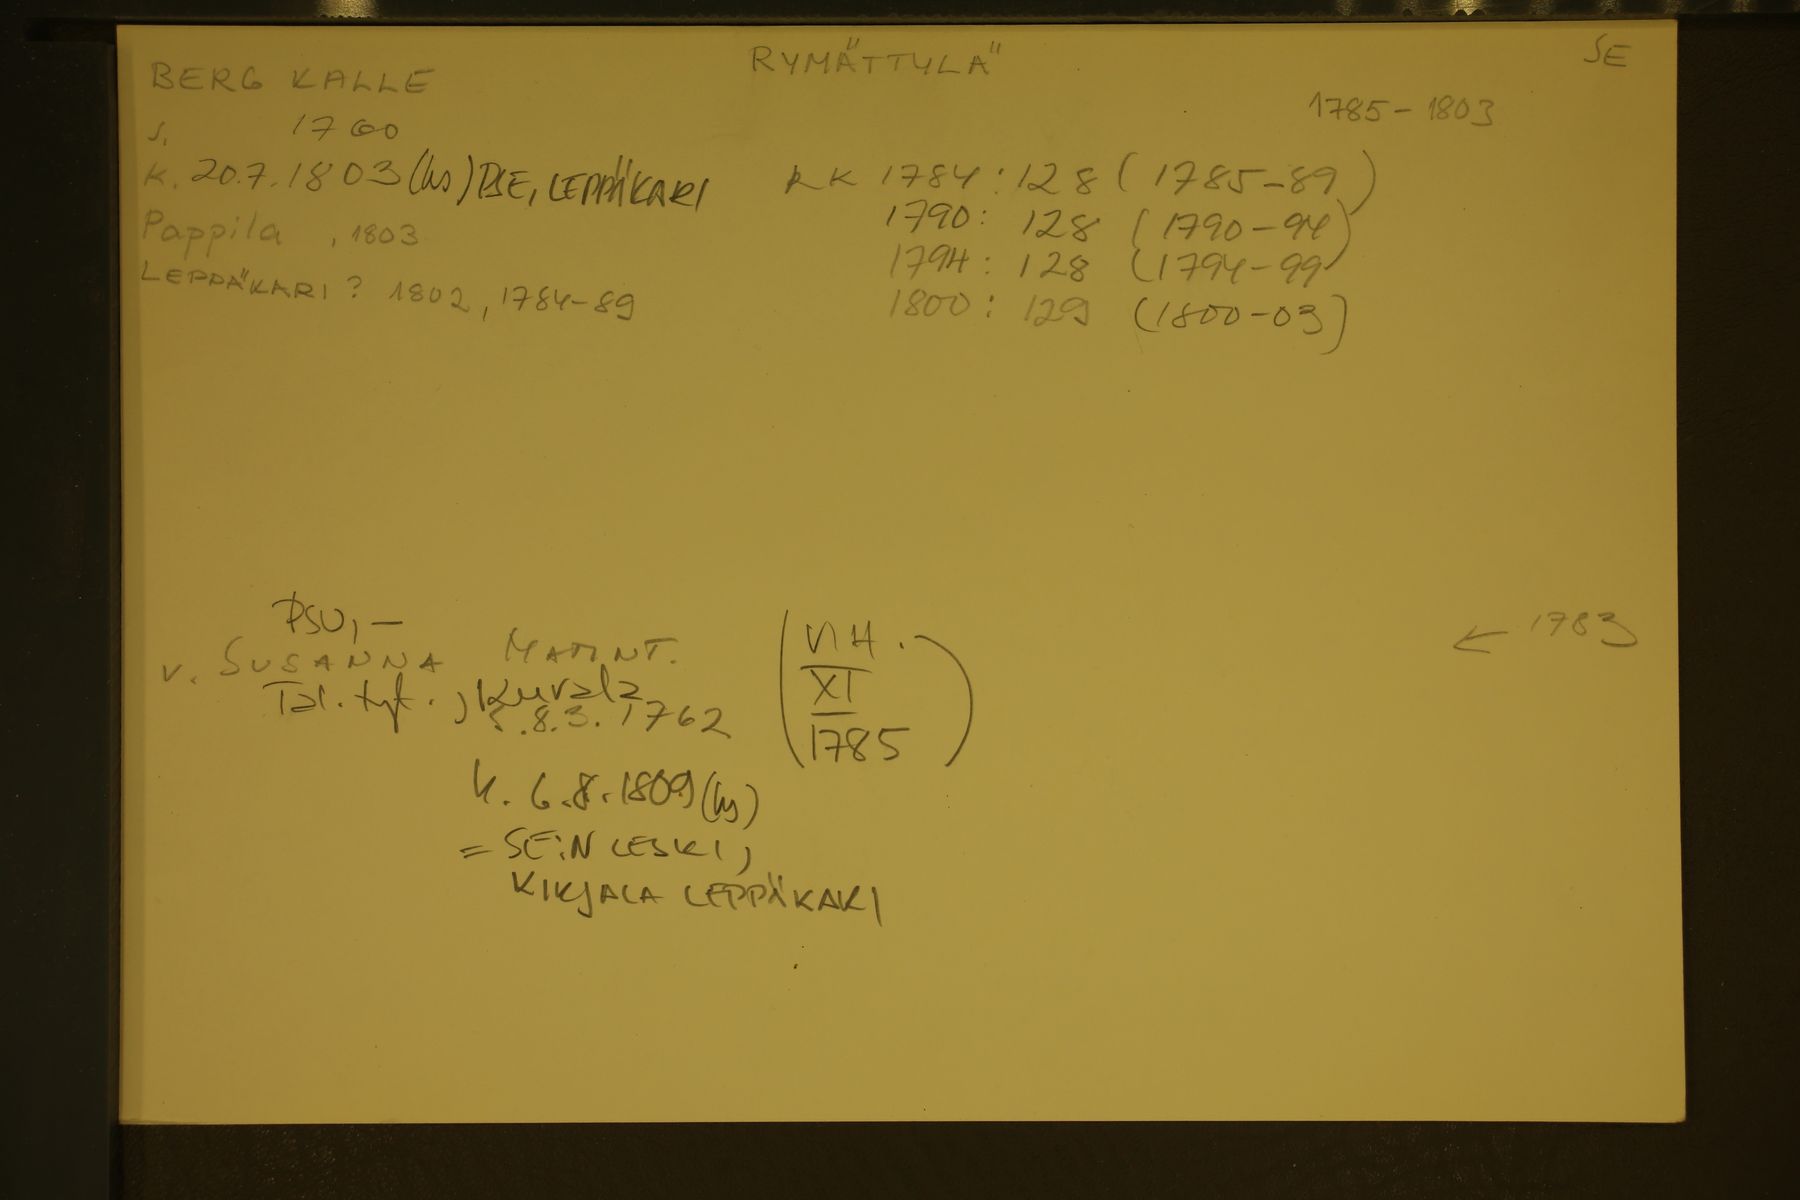 RYMÄTTYLÄ
SE
BERG KALLE
1785-1803
s. 1760
k. 20.7.1803 (ks) PSE, LEPPÄKARI
RK 1784: 128 (1785-89)
Pappila , 1803
1790: 128 (1790-94)
1794: 128 (1794-99)
LEPPÄKARI? 1802, 1784-89
1800: 129 (1800-03)
PSU, -
v. SUSANNA MATINT.
Tal. tyt., Kuvala
s. 8.3.1762
(VIH.
XI
1785)
← 1783
k. 6.8.1809 (ks)
= SE:N LESKI,
KIRJALA LEPPÄKARI